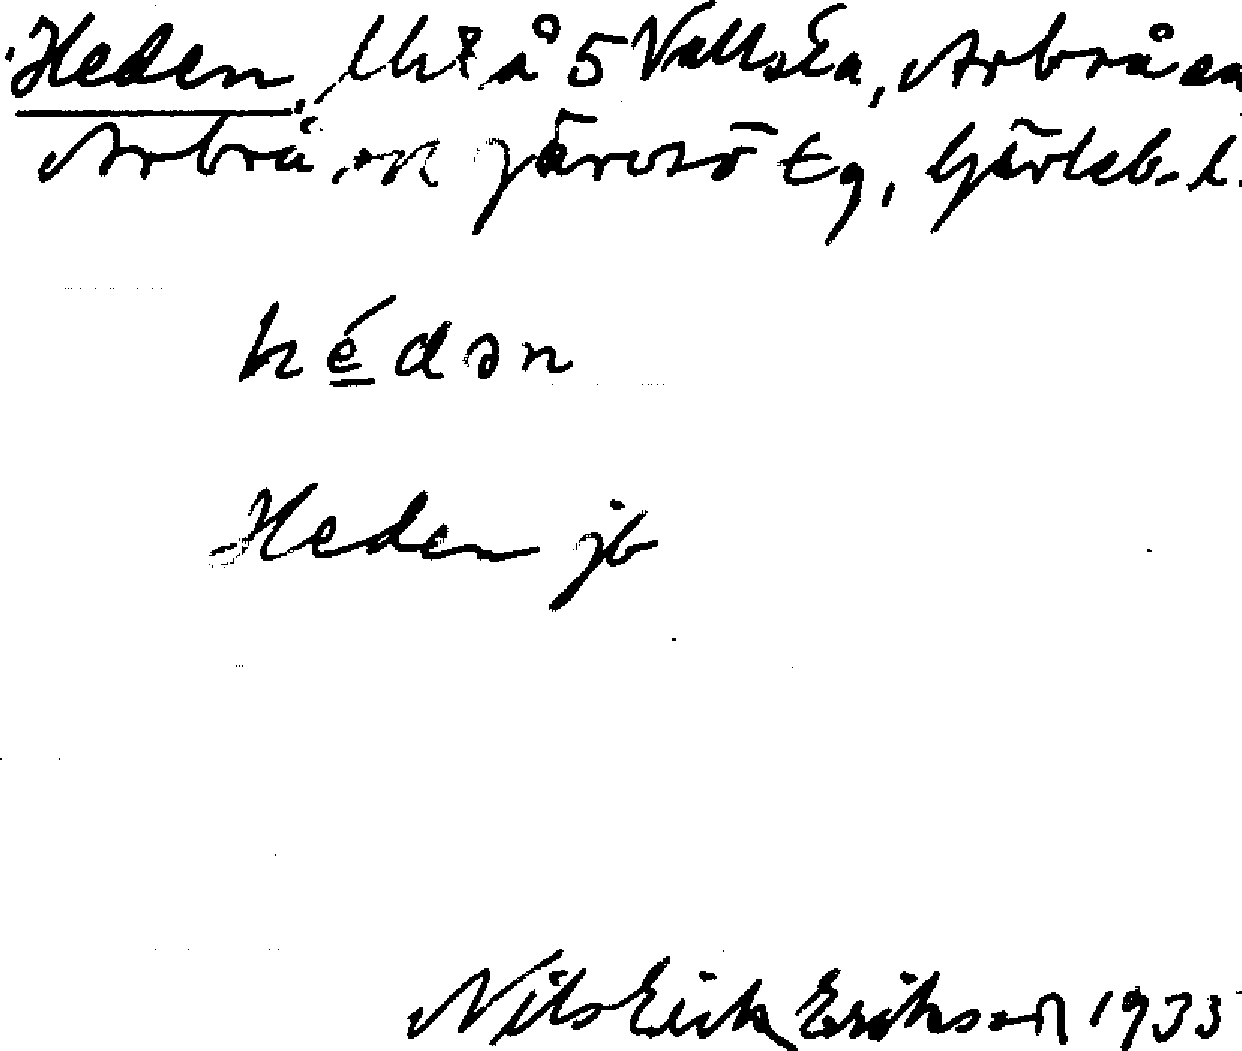 Heden, lht å 5 Vallsta, Arbrå sn
Arbrå o Järvsö tg, Gävleb. l.
hédən
Heden jb
Nils Erik Erikson 1933